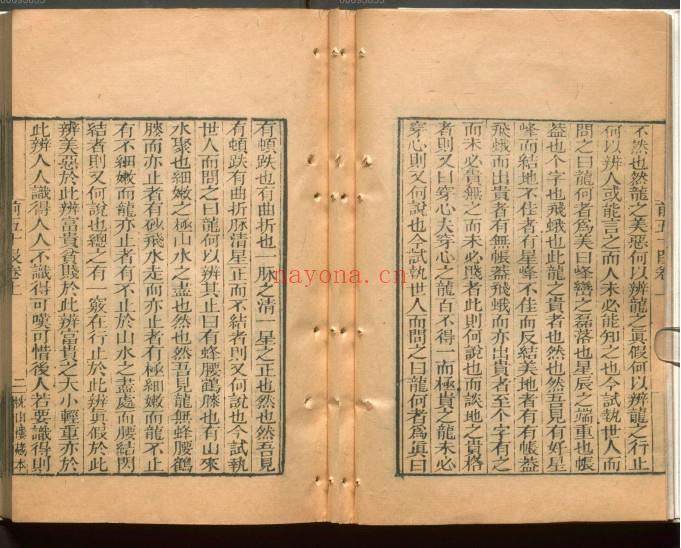 不然也然龍之美惡何以辨龍之眞假何以辨龍之行止
何以辨人或能言之而人未必能知之也今試執世人而
問之曰龍何者爲美曰峰巒之磊落也星辰之端重也帳
葢也个字也飛蛾也此龍之貴者也然也然吾見有好星
峰而結地不佳者有星峰不佳而反結美地者有有帳葢
飛蛾而出貴者有無帳葢飛蛾而亦出貴者至个字有之
而未必貴無之而未必賤者此則何說也而談地之貴格
者則又曰穿心夫穿心之龍百不得一而極貴之龍未必
穿心則又何說也今試執世人而問之曰龍何者爲眞曰
有頓跌也有曲折也一脉之清一星之正也然也然吾見
有頓跌有曲折脉清星正而不結者則又何說也今試執
世人而問之曰龍何以辨其止曰有蜂腰鶴膝也有山來
水聚也細嫩之極山水之盡也然也然吾見龍無蜂腰鶴
膝而亦止者有砂飛水走而亦止者有極細嫩而龍不止
有不細嫩而龍亦止者有不止於山水之盡處而腰結閃
結者則又何說也總之有一竅在行止於此辨眞假於此
辨美惡於此辨富貴貧賤於此辨富貴之大小輕重亦於
此辨人人識得人人不識得可嘆可惜後人若要識得則
卷上
二
山樓藏本
nayona.cn